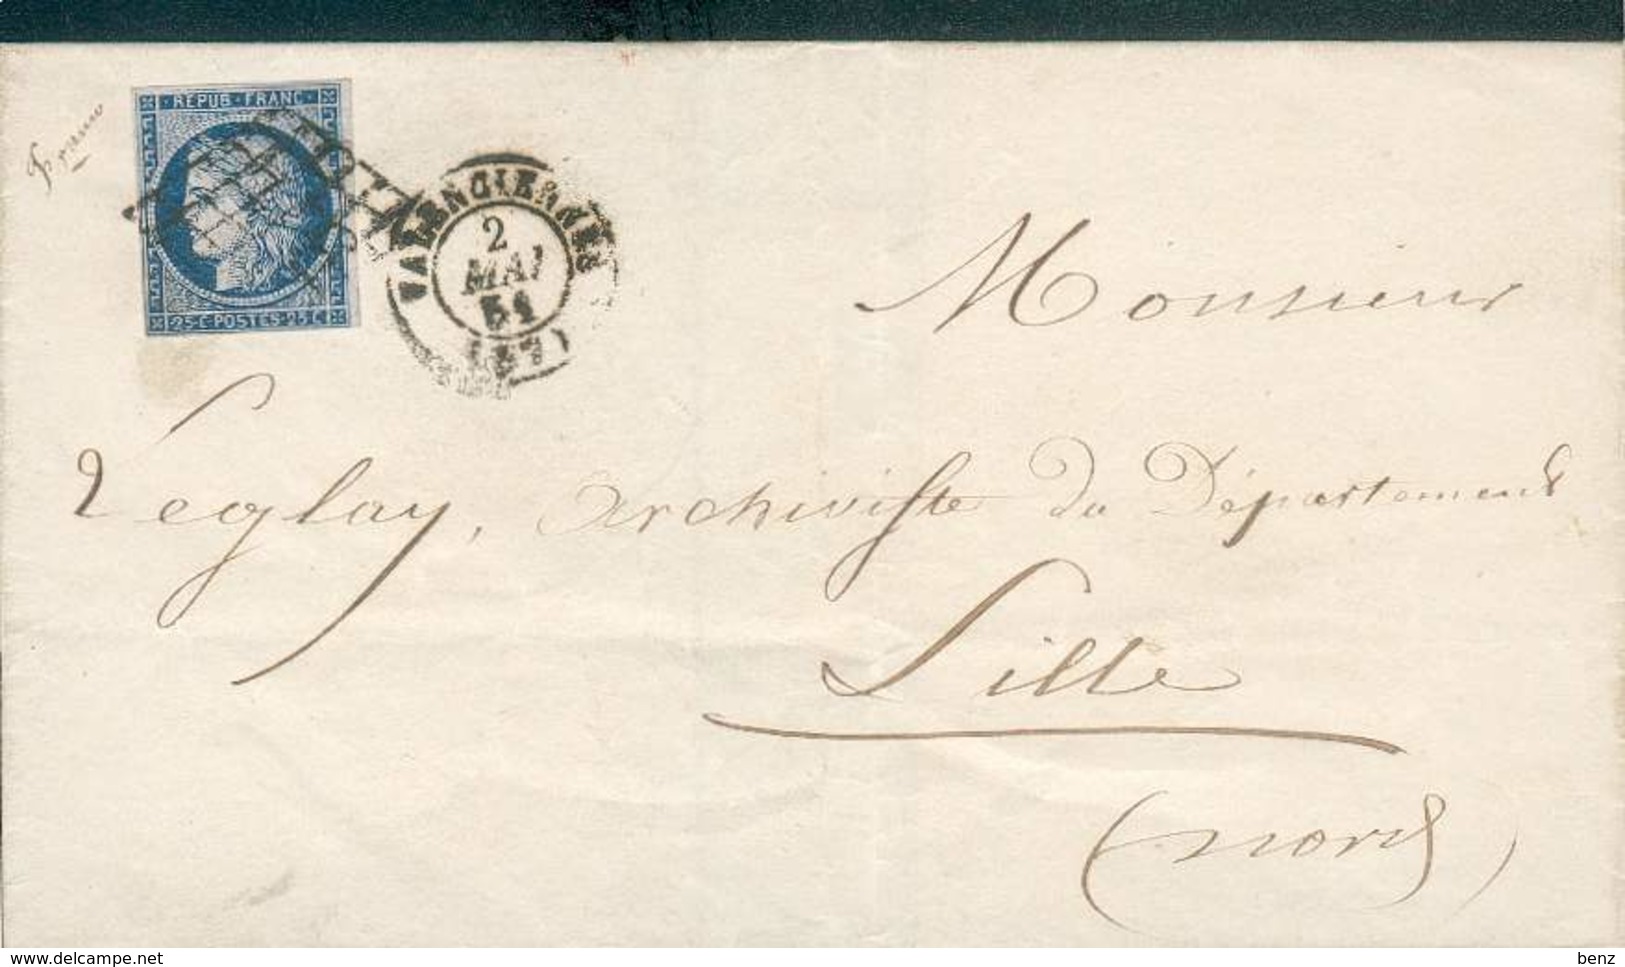 Franco
REPUB FRANC
25 C POSTES 25 C
VALENCIENNES
2
MAI
51
(57)
Monsieur
Leglay, archiviste du Département
Lille
(nord)
www.delcampe.net
benz